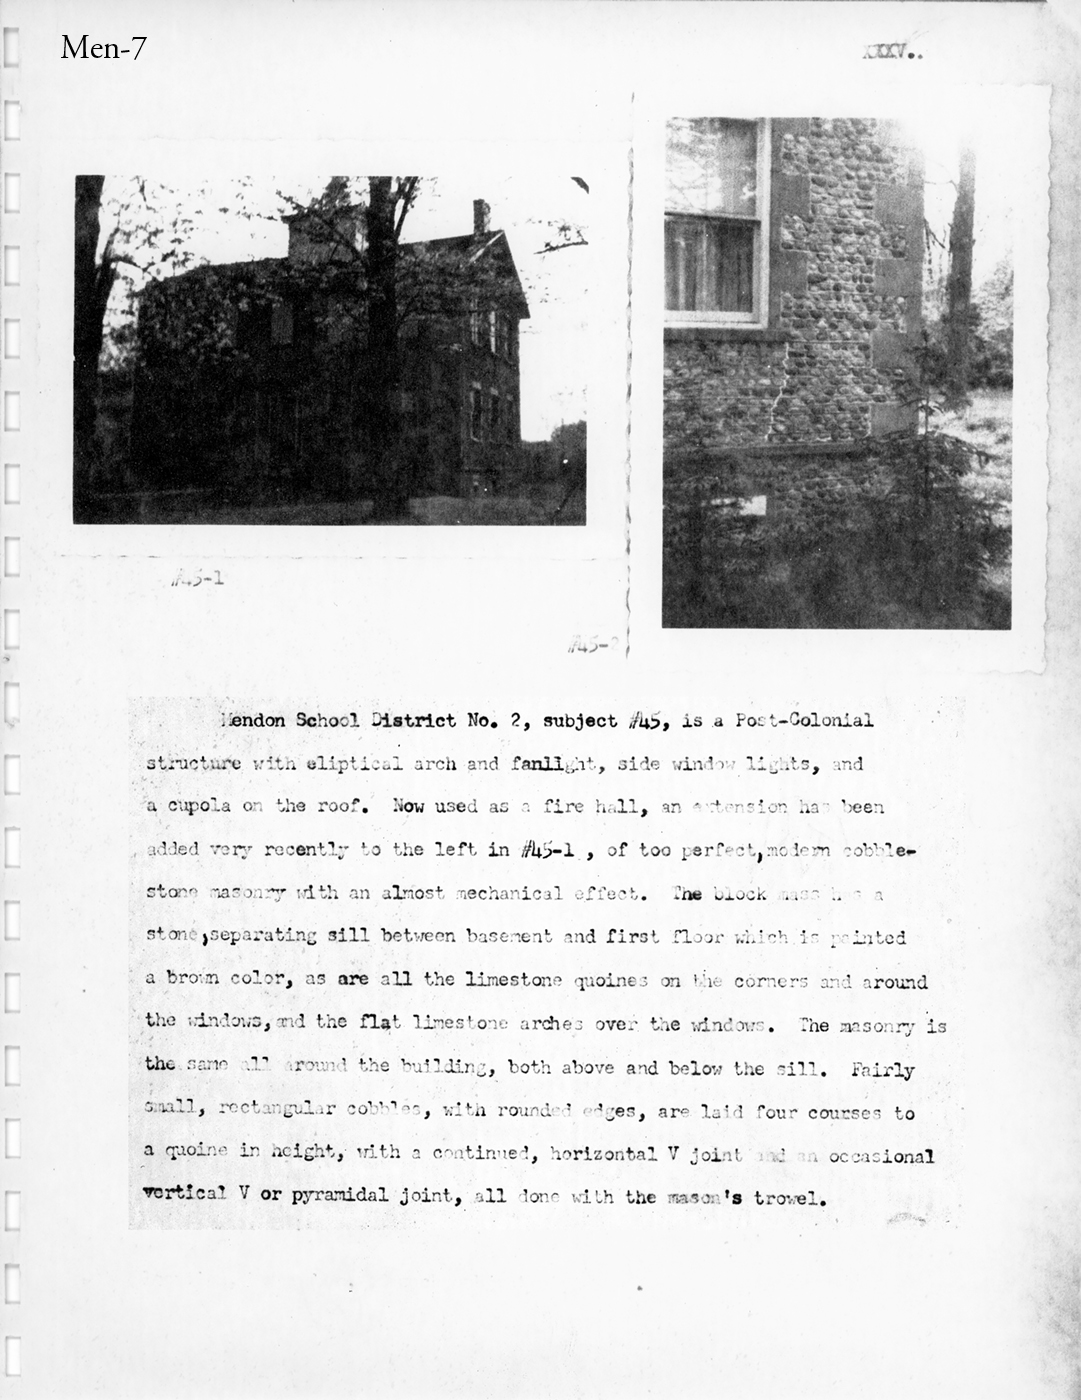 Men-7
XXXV..
#45-1
#45-2
Mendon School District No. 2, subject #45, is a Post-Colonial
structure with eliptical arch and fanlight, side window lights, and
a cupola on the roof. Now used as a fire hall, an extension has been
added very recently to the left in #45-1 , of too perfect,modern cobble-
stone masonry with an almost mechanical effect. The block mass has a
stone,separating sill between basement and first floor which is painted
a brown color, as are all the limestone quoines on the corners and around
the windows,and the flat limestone arches over the windows. The masonry is
the same all around the building, both above and below the sill. Fairly
small, rectangular cobbles, with rounded edges, are laid four courses to
a quoine in height, with a continued, horizontal V joint and an occasional
vertical V or pyramidal joint, all done with the mason's trowel.